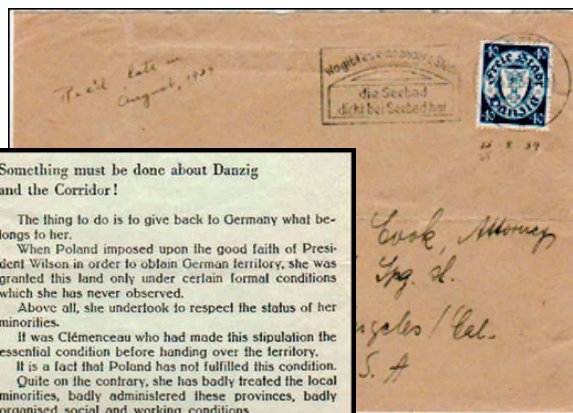 Rec'd late in
August, 1939
Wo gibt es eine andere Stadt
die Seebad
dicht bei Seebad hat
40 40
Freie Stadt
Danzig
40 40
8 39
Something must be done about Danzig
and the Corridor!
The thing to do is to give back to Germany what be-
longs to her.
When Poland imposed upon the good faith of Presi-
dent Wilson in order to obtain German territory, she was
granted this land only under certain formal conditions
which she has never observed.
Above all, she undertook to respect the status of her
minorities.
It was Clémenceau who had made this stipulation the
essential condition before handing over the territory.
It is a fact that Poland has not fulfilled this condition.
Quite on the contrary, she has badly treated the local
minorities, badly administered these provinces, badly
organised social and working conditions
Cook, Attorney
Spg. St.
ngeles / Cal.
S. A